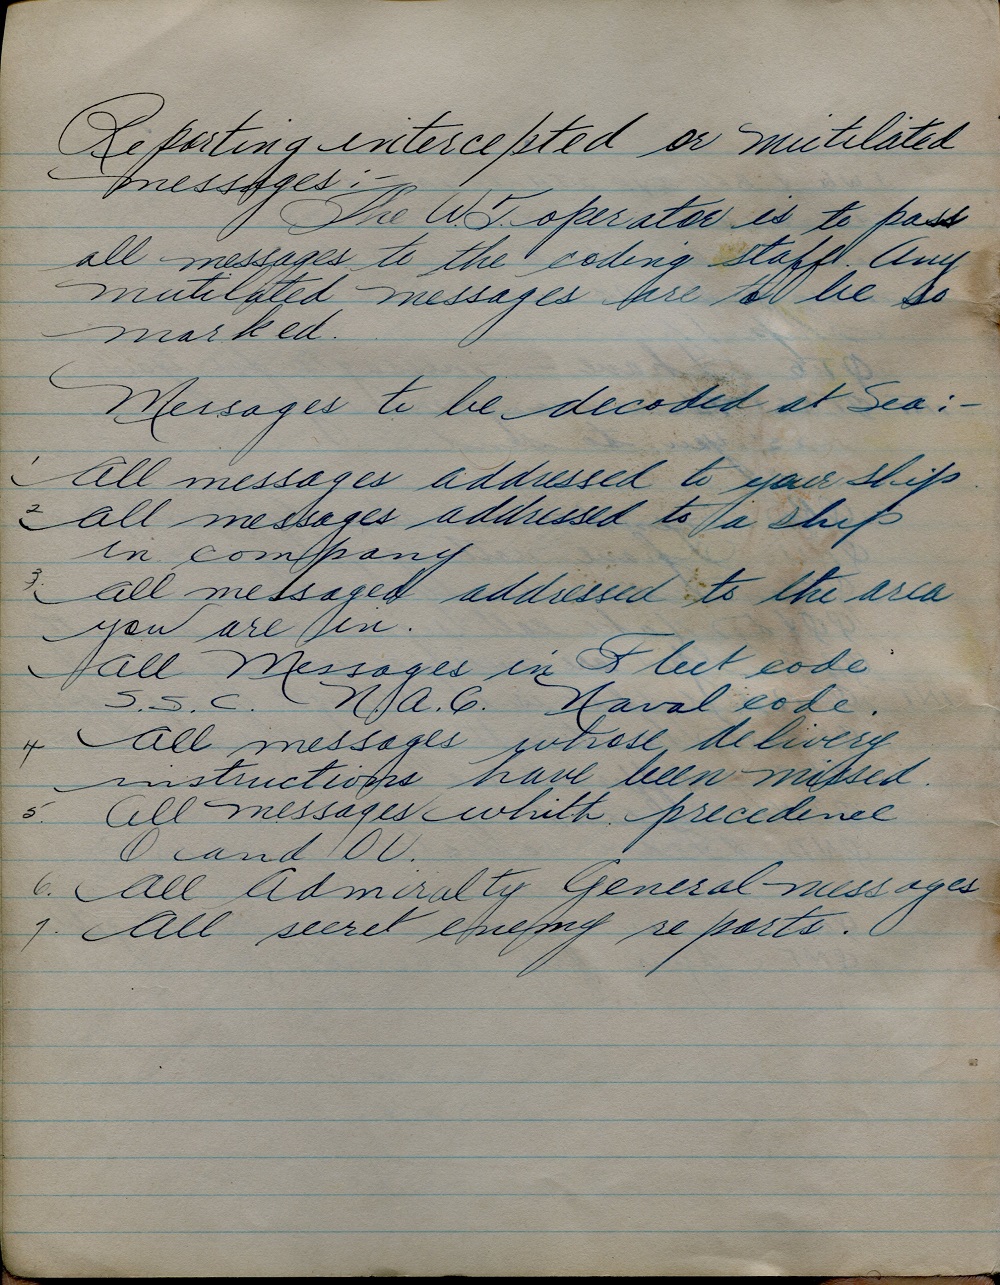 Reporting intercepted or mutilated
messages:-
The W.T. operator is to pass
all messages to the coding staff. Any
mutilated messages are to be so
marked.
Messages to be decoded at Sea:-
1 All messages addressed to your ship.
2 All messages addressed to a ship
in company
3. All messages addressed to the area
you are in.
All Messages in Fleet code
S.S.C. N.A.C. Naval code.
4 All messages whose delivery
instructions have been missed.
5. All messages whith precedence
O and OU.
6. All Admiralty General messages
7. All secret enemy reports.